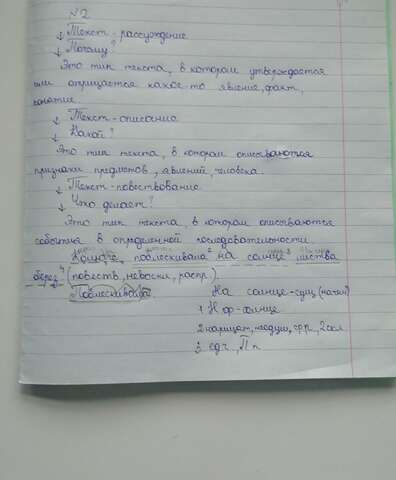 №2
↓ Текст-рассуждение
↓ Почему?
Это тип текста, в котором утверждается
или отрицается какое-то явление, факт,
понятие
↓ Текст-описание
↓ Какой?
Это тип текста, в котором описываются
признаки предметов, явлений, человека.
↓ Текст-повествование
↓ Что делает?
Это тип текста, в котором описываются
события в определенной последовательности.
поблескивала² на солнце³ листва
берез⁴ (повеств, невоскл, распр.).
Поблескивала.
На солнце-сущ (на чем)
1 Н.ф-солнце
2 нарицат, неодуш, ср.р, 2скл
3 ед.ч, П.п